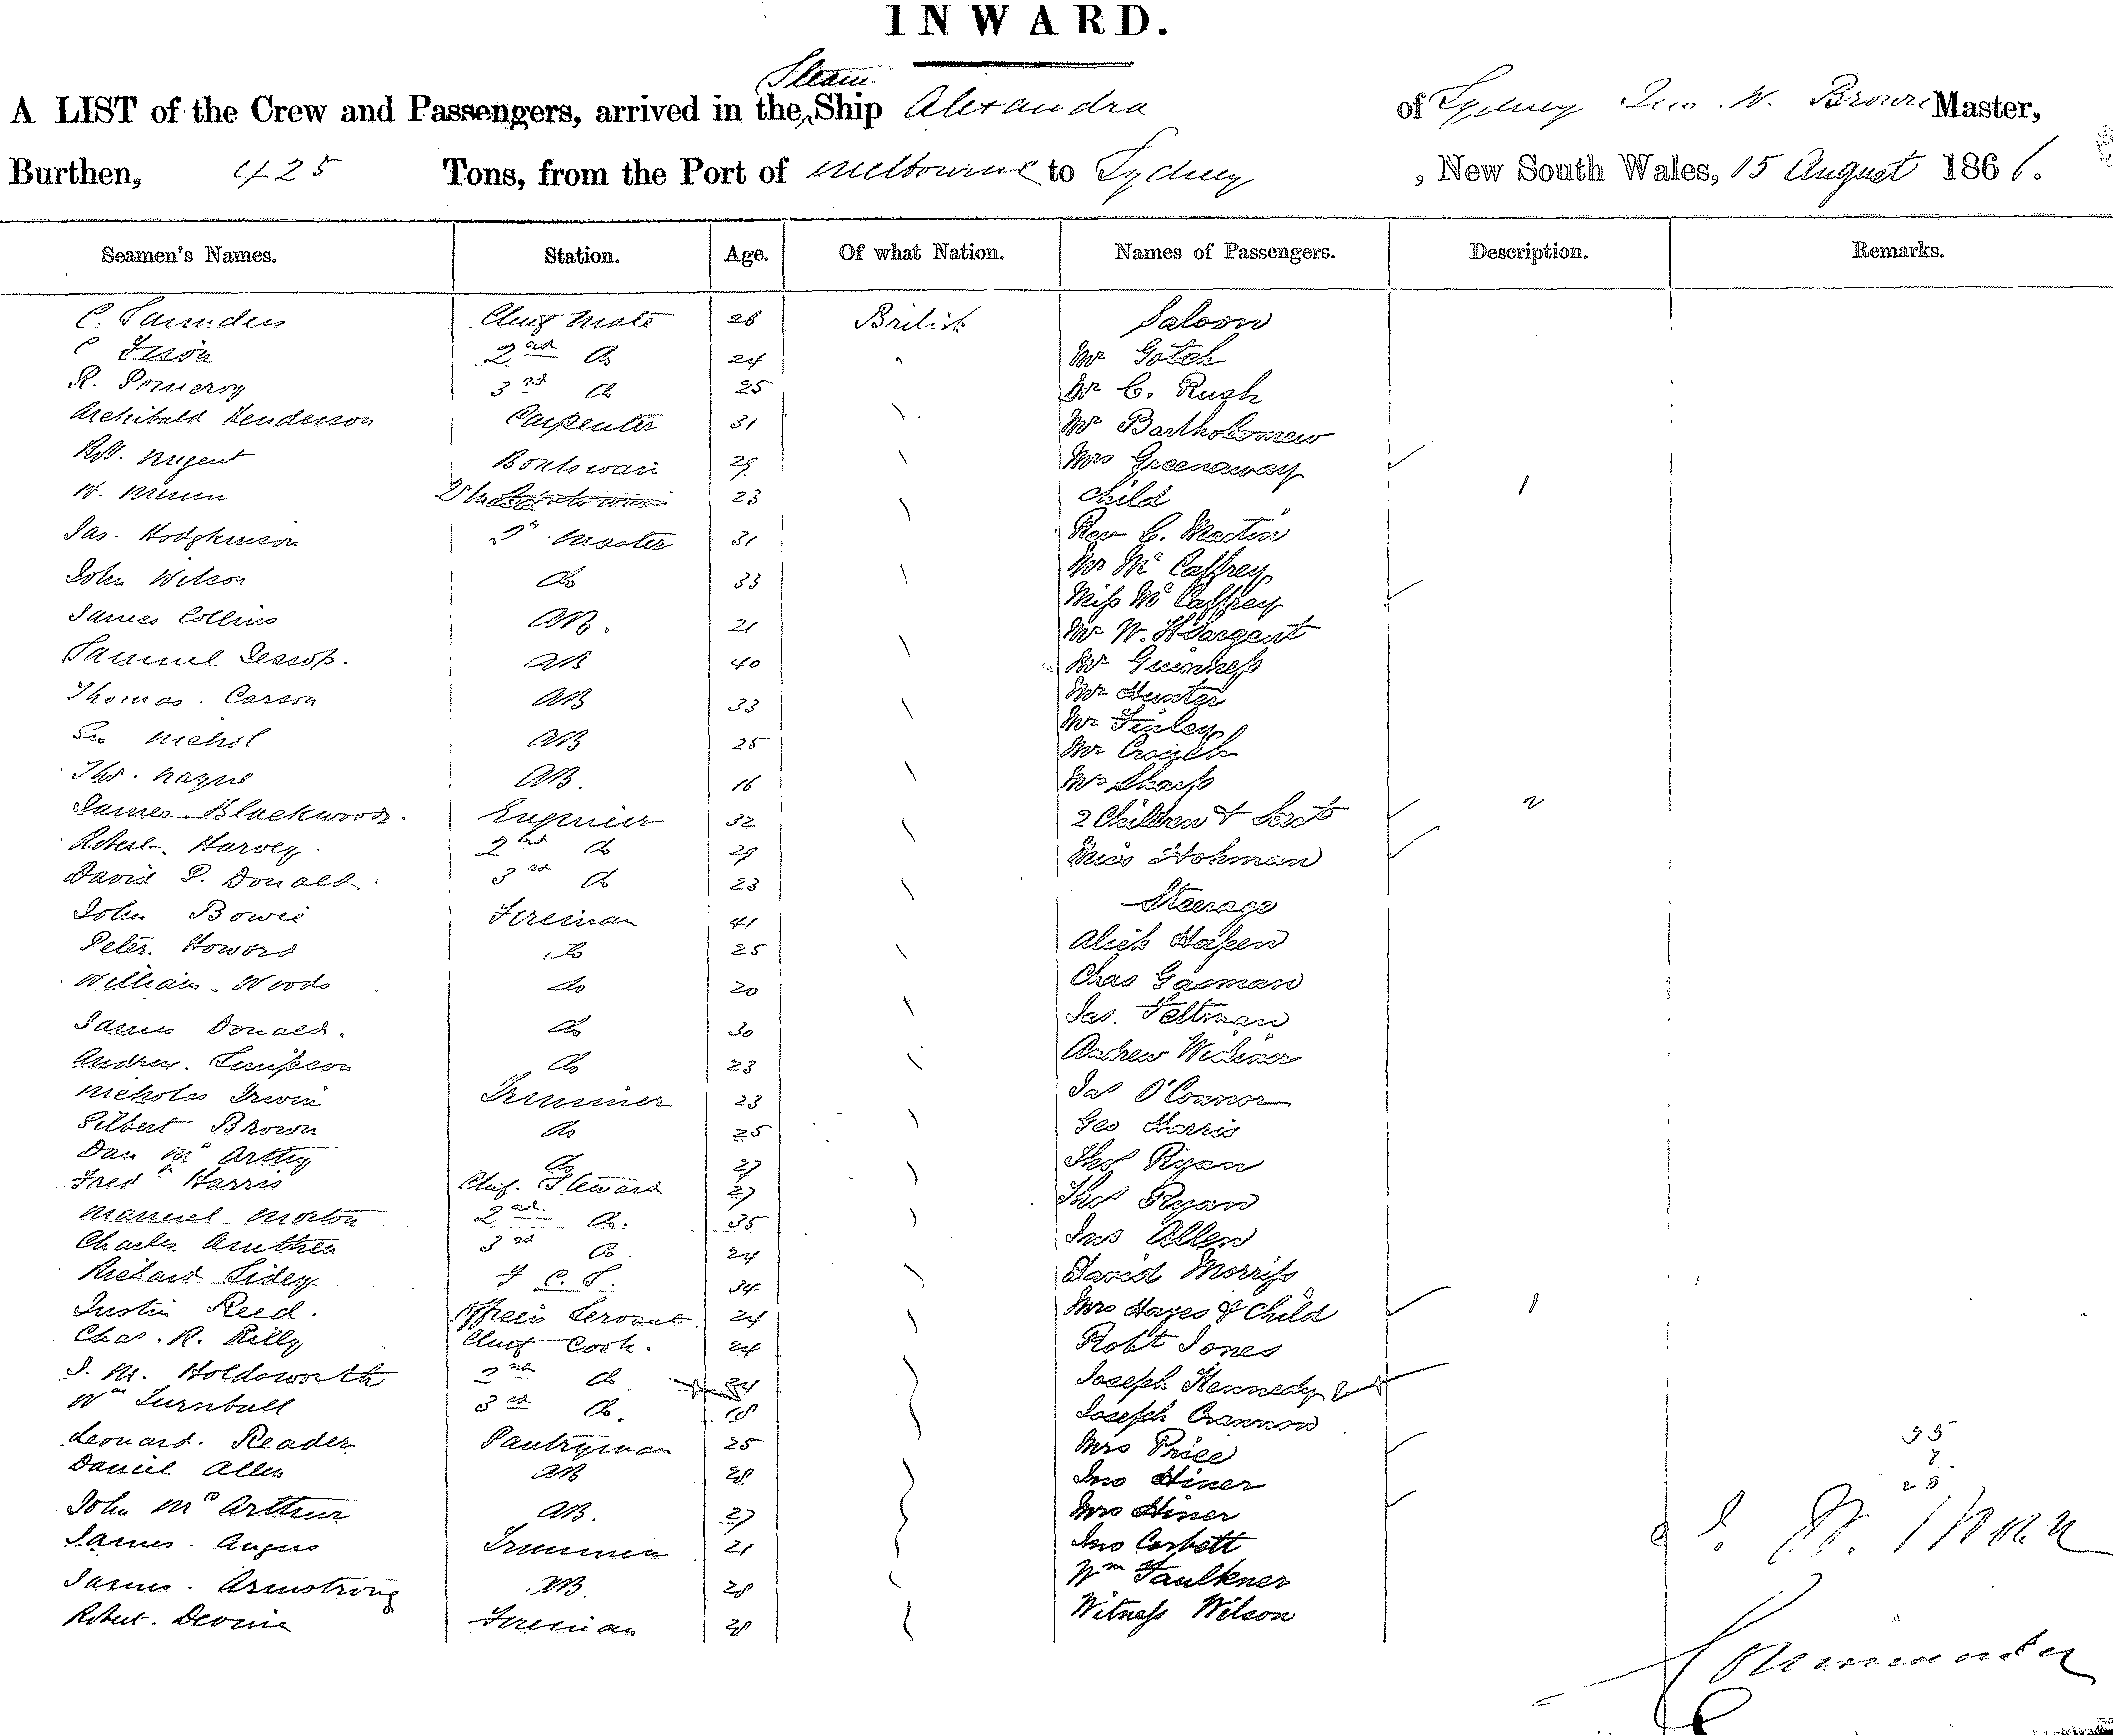 INWARD.
Steam
A LIST of the Crew and Passengers, arrived in the Ship Alexandra of Sydney Jno. W. Brown Master,
Burthen, 425 Tons, from the Port of Melbourne to Sydney, New South Wales, 15 August 1866.
Seamen's Names. Station. Age. Of what Nation. Names of Passengers. Description. Remarks.
C. Saunders Chief Mate 28 British Saloon
2nd do 24 Mr Gotch
R. Pomeroy 3rd do 25 Mr C. Rugh
Archibald Henderson Carpenter 31 Mr Bartholomew
Robt. Nugent Boatswain 29 Mrs Greenaway
W. 23 Child 1
Jas. Hodgkinson Master 31 Rev C. Martin
John Wilson do 33 Mr McCaffrey
James Collins AB. 21 Miss McCaffrey
Samuel Jessop. AB 40 Mr W. H Sargent
Thomas. Carson AB 33 Mr Guinness
Nichol AB 25 Mr Hunter
Mr Finley
Thos. Nayne AB. 16 Mr
Mrs Sharp
James Blackwood. Engineer 32 2 Children & Servt 2
Robert. Harvey 2nd do 29 Miss Hohman
David P. Donald. 3rd do 23
John Bowie Fireman 41 Steerage
Peter. Howard do 25 Alick
William. Woods do 20 Chas Gasman
James Donald. do 30 Jas. Feltman
Andrew. Simpson do 23 Andrew
Nicholas Irwin Trimmer 23 Jas O'Connor
Gilbert Brown do 25 Geo Harris
Dan McArthy do 27 Thos Ryan
Fred Harris Chief Steward 27 Thos Ryan
Manuel Morton 2nd do. 35 Jno Allen
Charles 3rd do. 24
Richard Sidey F. C. S. 34 David Morriss
Justin Reed. Officers Servant 24 Mrs Hayes & Child 1
Chas. R. Kelly Chief Cook. 24 Robt Jones
J. M. Holdsworth 2nd do 24 Joseph Kennedy
Wm Turnbull 3rd do. 18 Joseph
Leonard. Reader Pantryman 25 Mrs Price 35
Daniel Allen AB 28 Jno Hiner
John McArthur AB. 27 Mrs Hiner
James. Angus Trimmer 21 Jno Corbett
James. Armstrong AB. 28 Wm Faulkner
Robert. Devine Fireman 28 Witness Wilson
Commander